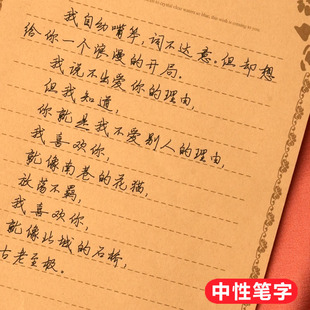 我自动嘴笨，词不达意。但却想
给你一个浪漫的开局。
我说不出爱你的理由，
但我知道，
你就是我不爱别人的理由，
我喜欢你，
就像南巷的花猫，
放荡不羁，
我喜欢你，
就像北城的石桥，
古老至极。
中性笔字